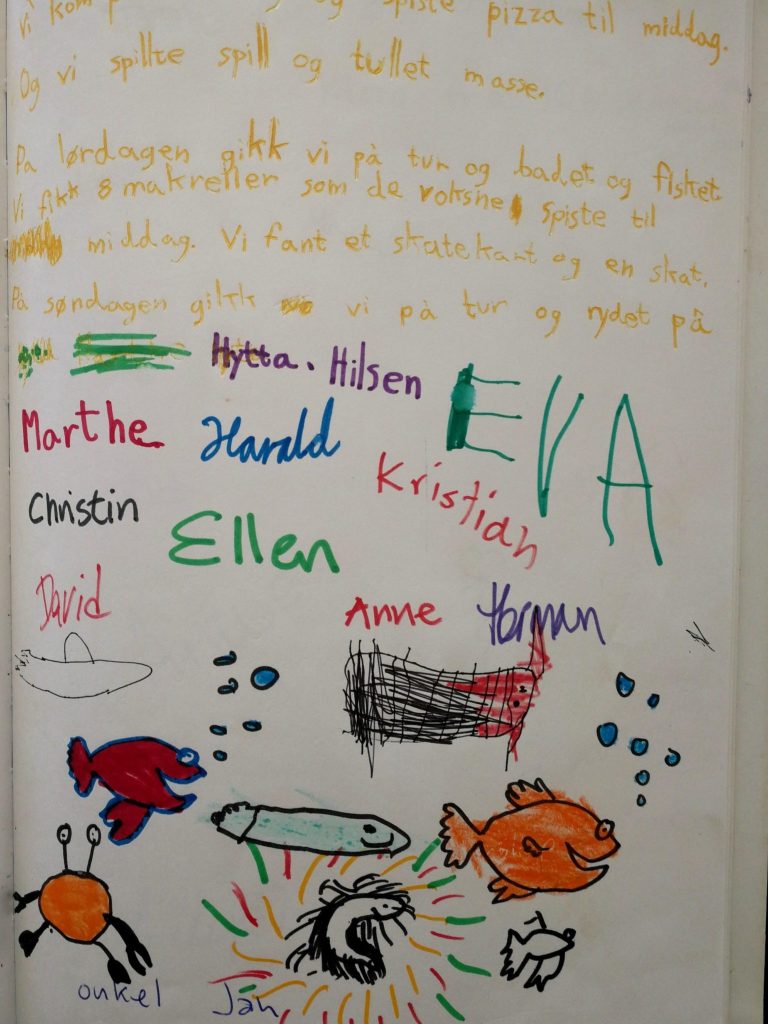 Vi kom og spiste pizza til middag.
Og vi spillte spill og tullet masse.
På lørdagen gikk vi på tur og badet og fisket
Vi fikk 8 makreller som de voksne spiste til
middag. Vi fant et skatekart og en skat.
På søndagen gikk vi på tur og rydet på
Hytta. Hilsen
EVA
Marthe Harald
Kristian
Christin
Ellen
David
Anne Herman
onkel Jan